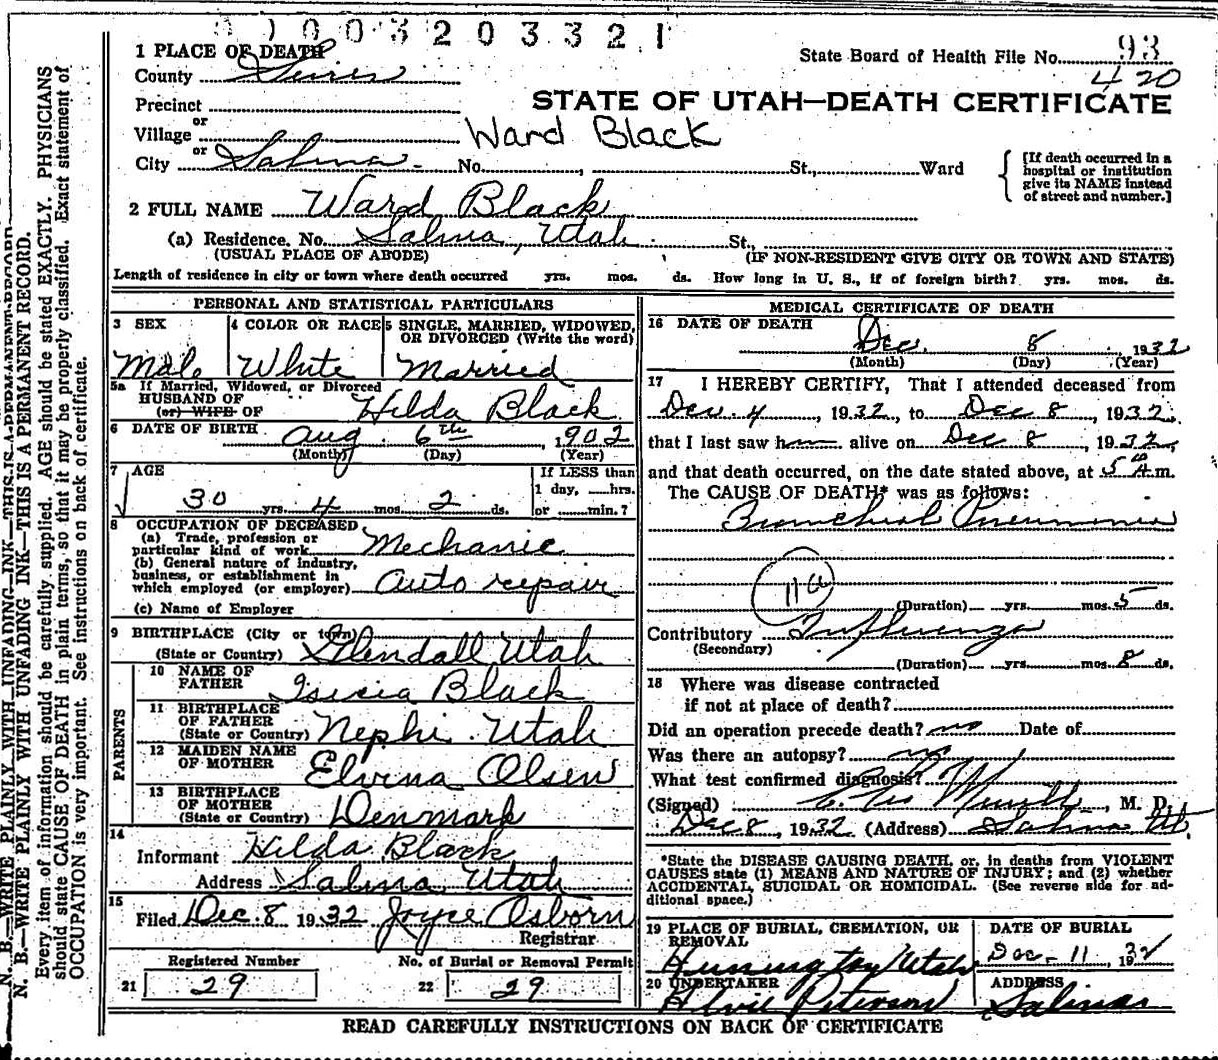 0 1 0 0 3 2 0 3 3 2 1
1 PLACE OF DEATH
State Board of Health File No. 93
County Sevier
420
Precinct
STATE OF UTAH—DEATH CERTIFICATE
or
Village
Ward Black
or
City Salina No. , St., Ward
[If death occurred in a hospital or institution give its NAME instead of street and number.]
2 FULL NAME Ward Black
(a) Residence. No. Salina, Utah St.,
(USUAL PLACE OF ABODE) (IF NON-RESIDENT GIVE CITY OR TOWN AND STATE)
Length of residence in city or town where death occurred yrs. mos. ds. How long in U. S., if of foreign birth? yrs. mos. ds.
PERSONAL AND STATISTICAL PARTICULARS
3 SEX
Male
4 COLOR OR RACE
White
5 SINGLE, MARRIED, WIDOWED, OR DIVORCED (Write the word)
Married
5a If Married, Widowed, or Divorced
HUSBAND OF
(or) WIFE OF Hilda Black
6 DATE OF BIRTH Aug. 6th 1902
(Month) (Day) (Year)
7 AGE
30 yrs. 4 mos. 2 ds.
If LESS than
1 day, hrs.
or min.?
8 OCCUPATION OF DECEASED
(a) Trade, profession or
particular kind of work Mechanic
(b) General nature of industry,
business, or establishment in
which employed (or employer) Auto repair
(c) Name of Employer
9 BIRTHPLACE (City or town)
(State or Country) Glendall Utah
PARENTS
10 NAME OF
FATHER Black
11 BIRTHPLACE
OF FATHER
(State or Country) Nephi Utah
12 MAIDEN NAME
OF MOTHER Elvina Olsen
13 BIRTHPLACE
OF MOTHER
(State or Country) Denmark
14
Informant Hilda Black
Address Salina Utah
15
Filed Dec. 8 1932 Joyce Osborn
Registrar
Registered Number No. of Burial or Removal Permit
21 29 22 29
MEDICAL CERTIFICATE OF DEATH
16 DATE OF DEATH
Dec. 8 1932
(Month) (Day) (Year)
17 I HEREBY CERTIFY, That I attended deceased from
Dec. 4, 1932, to Dec 8, 1932,
that I last saw h alive on Dec 8, 1932,
and that death occurred, on the date stated above, at 5 A m.
The CAUSE OF DEATH* was as follows:
Bronchial Pneumonia
11a
(Duration) yrs. mos. 5 ds.
Contributory Influenza
(Secondary)
(Duration) yrs. mos. 8 ds.
18 Where was disease contracted
if not at place of death?
Did an operation precede death? no Date of
Was there an autopsy? no
What test confirmed diagnosis?
(Signed) , M. D.
Dec 8, 1932 (Address) Salina Ut.
*State the DISEASE CAUSING DEATH, or, in deaths from VIOLENT
CAUSES state (1) MEANS AND NATURE OF INJURY; and (2) whether
ACCIDENTAL, SUICIDAL OR HOMICIDAL. (See reverse side for ad-
ditional space.)
19 PLACE OF BURIAL, CREMATION, OR
REMOVAL
Huntington Utah
DATE OF BURIAL
Dec. 11, 1932
20 UNDERTAKER
Peterson
ADDRESS
Salina
READ CAREFULLY INSTRUCTIONS ON BACK OF CERTIFICATE
N. B.—WRITE PLAINLY WITH UNFADING INK—THIS IS A PERMANENT RECORD.
N. B.—WRITE PLAINLY WITH UNFADING INK—THIS IS A PERMANENT RECORD.
Every item of information should be carefully supplied. AGE should be stated EXACTLY. PHYSICIANS
should state CAUSE OF DEATH in plain terms, so that it may be properly classified. Exact statement of
OCCUPATION is very important. See instructions on back of certificate.